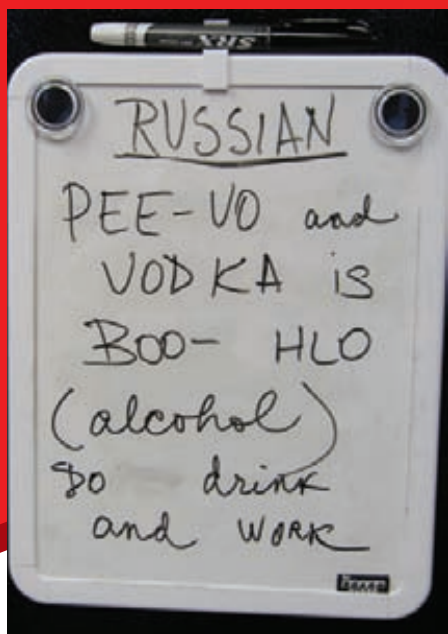 RUSSIAN
PEE-VO and
VODKA is
BOO- HLO
(alcohol)
DO drink
and WORK